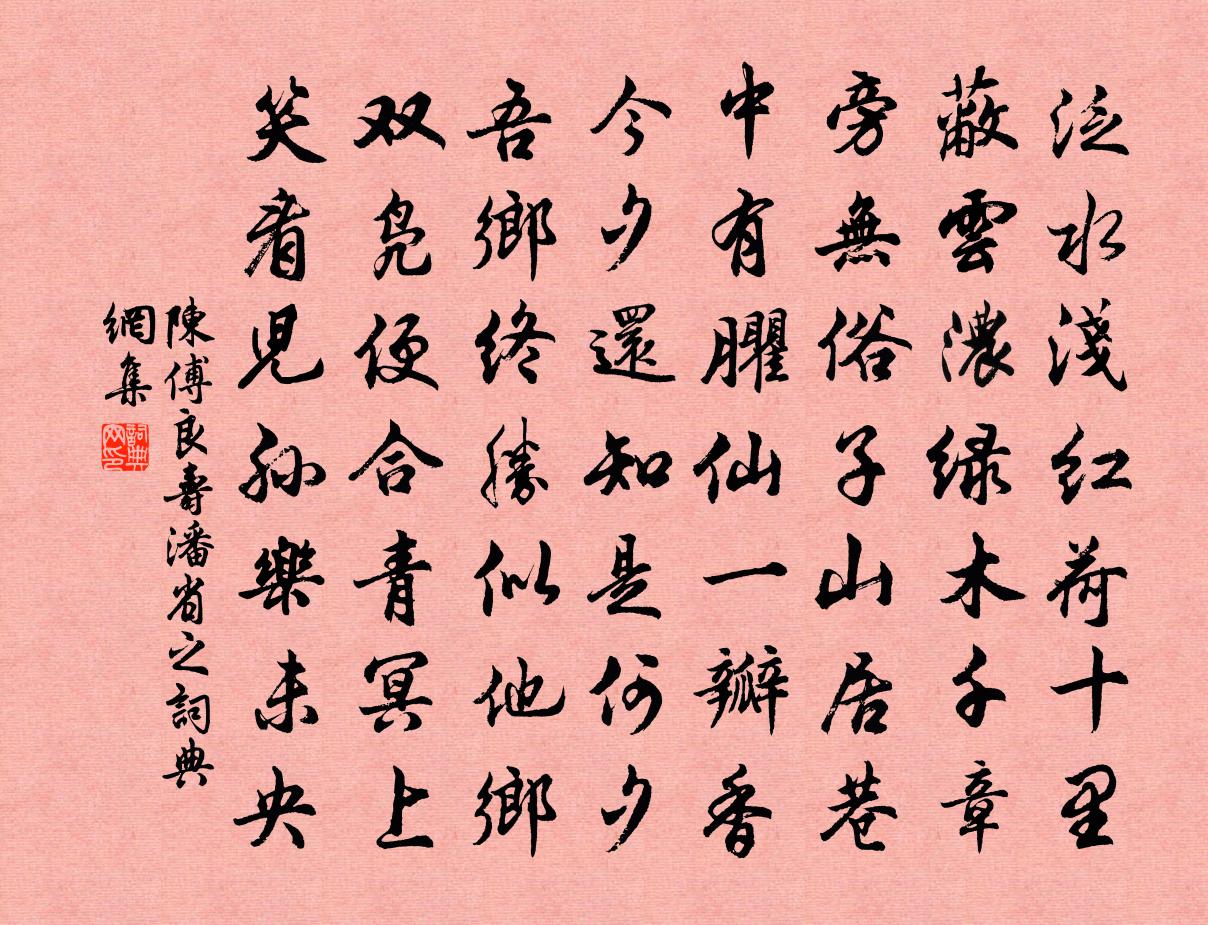 泛水淺红荷十里
蔽雲濃緑木千章
旁無俗子山居巷
中有臞仙一瓣香
今夕還知是何夕
吾鄉終勝似他鄉
双凫便合青冥上
笑看児孙樂未央
陳傅良壽潘省之詞典
網集
詞典
网印